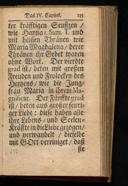 Das IV. Capitel. 125
ter kräfftigen Seufftzen /
wie Hanna 1. Sam. 1. und
mit heissen Thränen wie
Maria Magdalena / derer
Thränen ihr Gebet waren
ohne Wort. Der vierdte
grad ist / beten mit grossen
Freuden und Frolocken des
Hertzens / wie die Jung-
frau Maria in ihrem Ma-
gnificat. Der Fünffte grad
ist / beten aus grosser feuri-
ger Liebe: diese haben alle
ihre Lebens- und Seelen-
Kräffte in die Liebe gezogen /
und verwandelt / dieselbe
mit GOtt vereiniget / daß